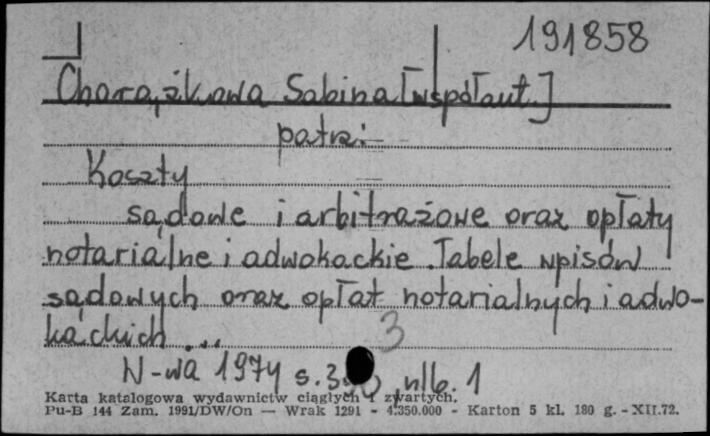 191858
Charążkowa Sabina [współaut.]
patrz:
Koszty
sądowe i arbitrażowe oraz opłaty
notarialne i adwokackie. Tabele wpisów
sądowych oraz opłat notarialnych i adwo-
kackich ...
3
W-wa 1974 s. nlb. 1
Karta katalogowa wydawnictw ciągłych i zwartych.
Pu-B 144 Zam. 1991/DW/On — Wrak 1291 - 4.350.000 - Karton 5 kl. 180 g. - XII.72.